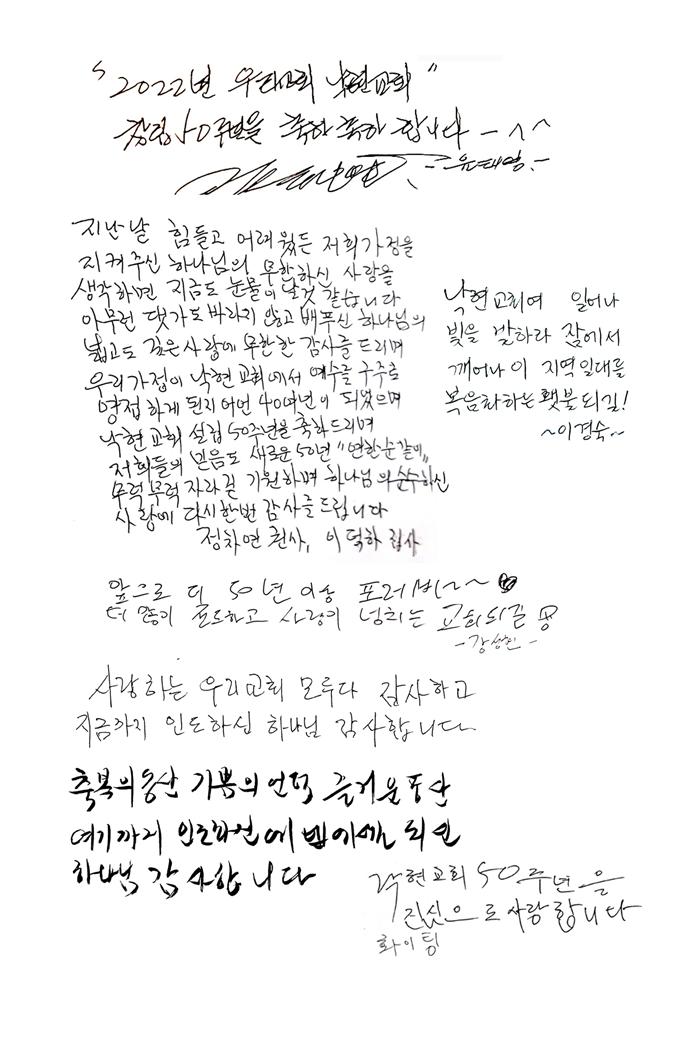 "2022년 우리교회 낙현교회"
창립 50주년을 축하 축하 합니다 - ^^
-유태영.-
지난날 힘들고 어려웠든 저희가정을
지켜주신 하나님의 무한하신 사랑을
생각하면 지금도 눈물이 날것 같습니다
아무런 댓가도 바라지 않고 배푸신 하나님의
넓고도 깊은 사랑에 무한한 감사를 드리며
우리가정이 낙현교회에서 예수를 구주로
영접하게 된지 어언 40여년이 되었으며
낙현교회 설립 50주년을 축하드리며
저희들의 믿음도 새로운 50년 "연한순같이"
무럭무럭 자라길 기원하며 하나님의 순수하신
사랑에 다시한번 감사를 드립니다
정차연 권사, 이덕하 집사
낙현교회여 일어나
빛을 발하라 잠에서
깨어나 이 지역일대를
복음화하는 횃불되길!
~이경숙~
앞으로 더 50년 이상 포레버~~ ♥
더 많이 전도하고 사랑이 넘치는 교회되길
-강성현-
사랑하는 우리교회 모두다 감사하고
지금까지 인도하신 하나님 감사합니다
축복의동산 기쁨의언덕 즐거운동산
여기까지 인도하신 에벤에셀 되신
하나님 감사합니다
낙현교회 50주년을
진심으로 사랑합니다
화이팅